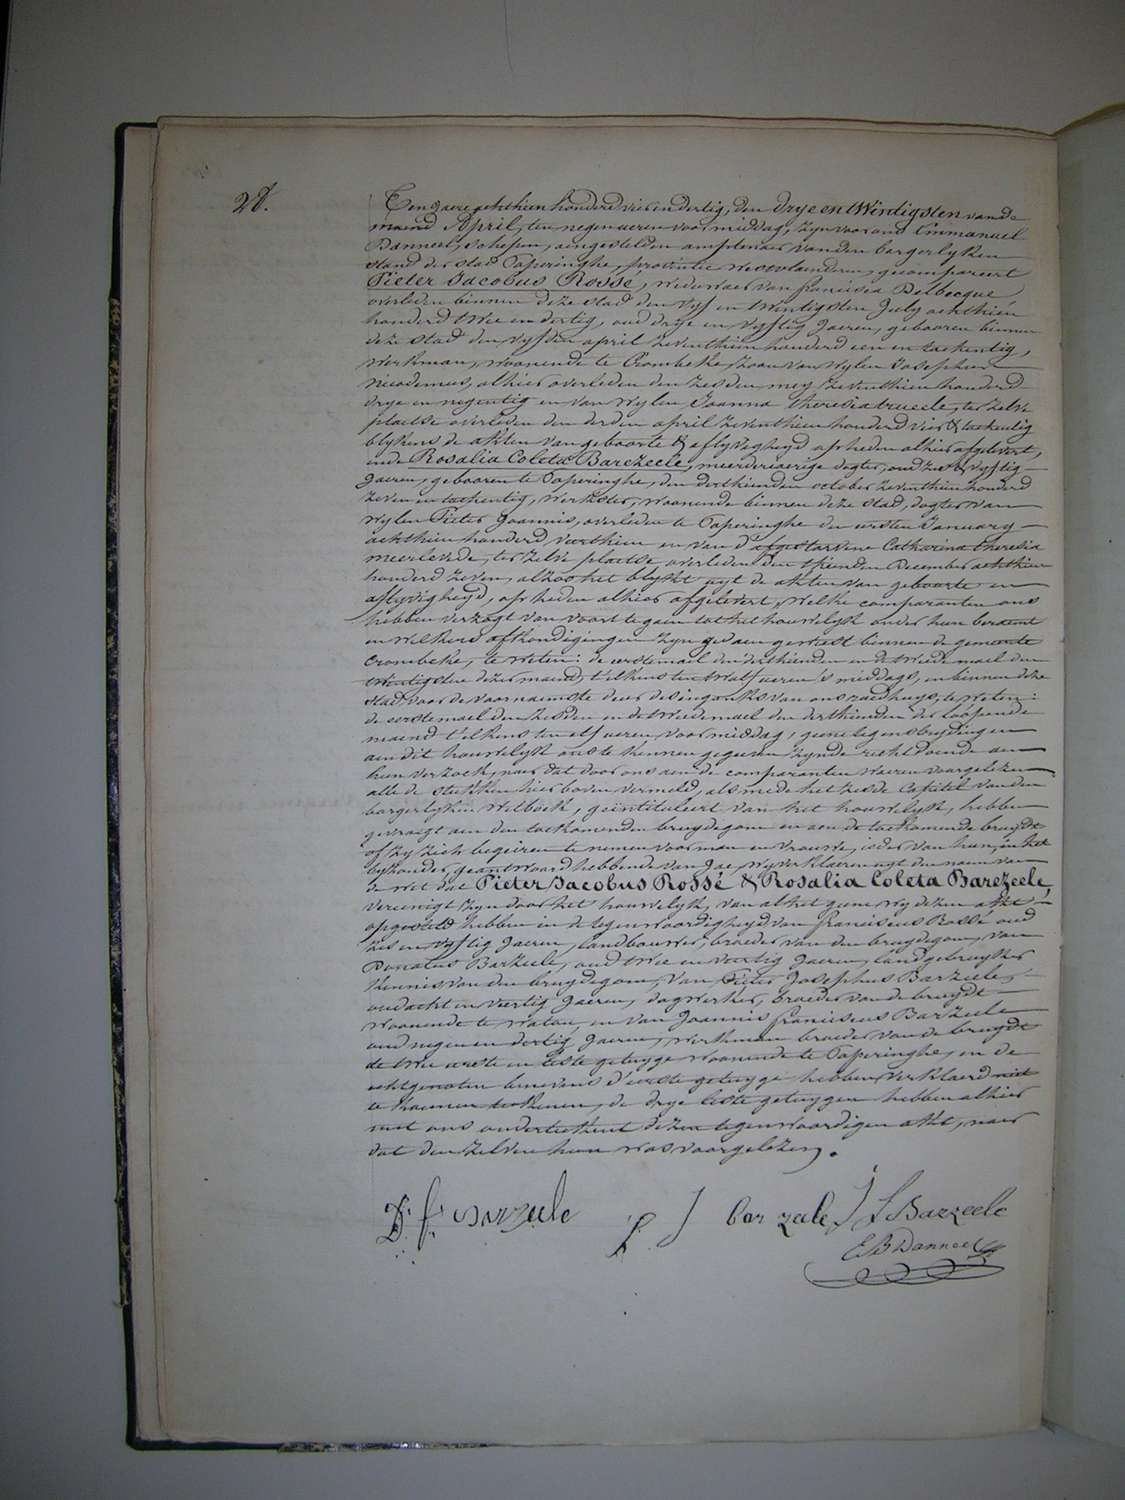 28.
Ten jaere achthien honderd vier en dertig, den drye en twintigsten van de
maend April, ten negen ueren voor middag, zyn voor ons Emmanuel
Banneel, schepen, aengestelden amptenaer van den borgerlyken
stand der stad Poperinghe, provintie westvlaenderen, gecompareert
Pieter Jacobus Rossé, weduwaer van francisca Delbecque
overleden binnen deze stad den vyf en twintigsten July achthien
honderd twee en dertig, oud drye en vyftig jaeren, gebooren binnen
deze stad den vyfden april zeventhien honderd een en tachentig,
werkman, woonende te Crombeke, zoon van wylen Josephus
nicodemus, alhier overleden den zesden mey zeventhien honderd
drye en negentig en van wylen Joanna theresia bruesle, ter zelve
plaetse overleden den derden april zeventhien honderd vier & tachentig
blykens de akten van geboorte & aflyvigheyd op heden alhier afgelevert,
ende Rosalia Coleta Barezeele, meerderjaerige dogter, oud zes & vyftig
jaeren, gebooren te Poperinghe, den derthienden october zeventhien honderd
zeven en tachentig, werkster, woonende binnen deze stad, dogter van
wylen Pieter Joannis, overleden te Poperinghe den eersten January
achthien honderd veerthien en van d'afgestorvene Catharina theresia
meerlevede, ter zelve plaetse overleden den thienden December achthien
honderd zeven, alzoo het blykt uyt de akten van geboorte en
aflyvigheyd, op heden alhier afgelevert, welke comparanten ons
hebben verzogt van voort te gaen tot het houwelyk onder hun beraemt
en welkers afkondigingen zyn gedaen geweest binnen de gemeente
Crombeke, te weten: de eerstemael den derthienden en de tweedemael den
twintigsten dezer maend, t'elkens ten twalf ueren 's middags, en binnen deze
stad voor de voornaemste deur des ingangs van ons raedhuys, te weten:
de eerstemael den zesden en de tweedemael den derthienden der loopende
maend t'elkens ten elf ueren voor middag, geene tegenstrydingen
aen dit houwelyk ons te kennen gegeven zynde recht doende aen
hun verzoek, naer dat door ons aen de comparanten waeren voorgelezen
alle de stukken hier boven vermeld, als mede het zesde Capitel van den
borgerlyken wetboek, geintituleert van het houwelyk, hebben
gevraegt aen den toekomenden bruydegom en aen de toekomende bruydt
of zy zich begeiren te nemen voor man en vrouwe, ieder van hun, in het
byzonder, geantwoord hebbende van Jae, wy verklaeren uyt den naem van
de wet dat Pieter Jacobus Rossé & Rosalia Coleta Barezeele,
vereenigt zyn door het houwelyk, van al het gene wy dezen akt
opgesteld hebben in de tegenwoordigheyd van franciscus Rossé oud
zes en vyftig jaeren, landbouwer, broeder van den bruydegom, van
Donatus Barzeele, oud twee en veertig jaeren, landgebruyker
kennis van den bruydegom, van Pieter Josephus Barzeele,
oud acht en viertig jaeren, dagwerker, broeder van de bruydt
woonende te watou, en van Joannis franciscus Barzeele
oud negen en dertig jaeren, werkman broeder van de bruydt
de twee eerste en leste getuyge woonende te Poperinghe, en de
echtgenoten benevens d'eerste getuyge hebben verklaerd niet
te konnen teekenen, de drye leste getuygen hebben alhier
met ons onderteekent dezen tegenwoordigen akt, naer
dat den zelven hun was voorgelezen.
D. f. Barzeele p J bar zeele J f Barzeele
E B Banneel